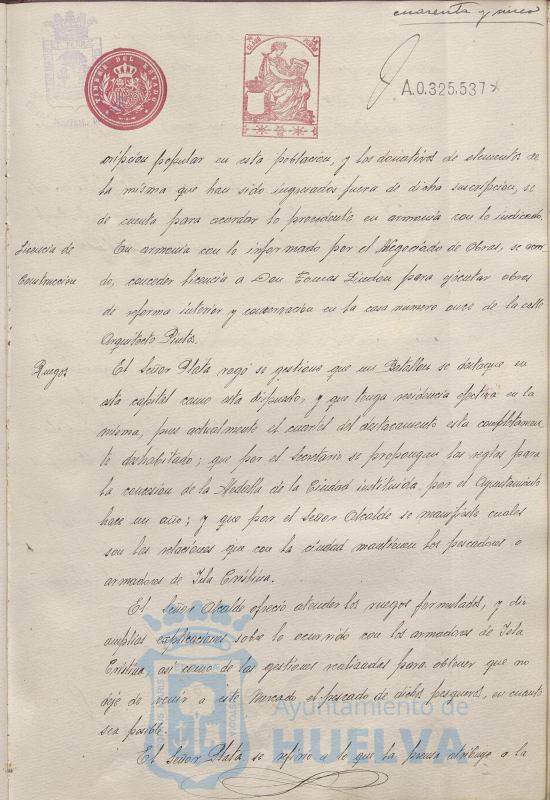 cuarenta y nueve
TIMBRE DEL ESTADO
A.0.325.537
cripcion popular en esta poblacion, y los donativos de elementos de
la misma que han sido ingresados fuera de dicha suscripcion, se
de cuenta para acordar lo procedente en armonia con lo indicado.
Licencia de
Construccion
En armonia con lo informado por el Negociado de Obras, se acor
do, conceder licencia a Don Tomas Lindon para ejecutar obras
de reforma interior y conservacion en la casa numero once de la calle
Arquitecto Pintos.
Ruegos
El Señor Plata rogó se gestione que un Batallon se destaque en
esta capital como esta dispuesto, y que tenga residencia efectiva en la
misma, pues actualmente el cuartel del destacamento esta completamen
te deshabitado; que por el Secretario se propongan las reglas para
la concesion de la Medalla de la Ciudad instituida, por el Ayuntamiento
hace un año; y que por el Señor Alcalde se manifieste cuales
son las relaciones que con la ciudad mantienen los pescadores o
armadores de Isla Cristina.
El Señor Alcalde ofreció atender los ruegos formulados, y dio
amplias explicaciones sobre lo ocurrido con los armadores de Isla
Cristina, asi como de las gestiones realizadas para obtener que no
deje de venir a este Mercado el pescado de dichos pesqueros, en cuanto
sea posible.
Ayuntamiento de
HUELVA
El Señor Plata se refirió a lo que la prensa atribuye a la